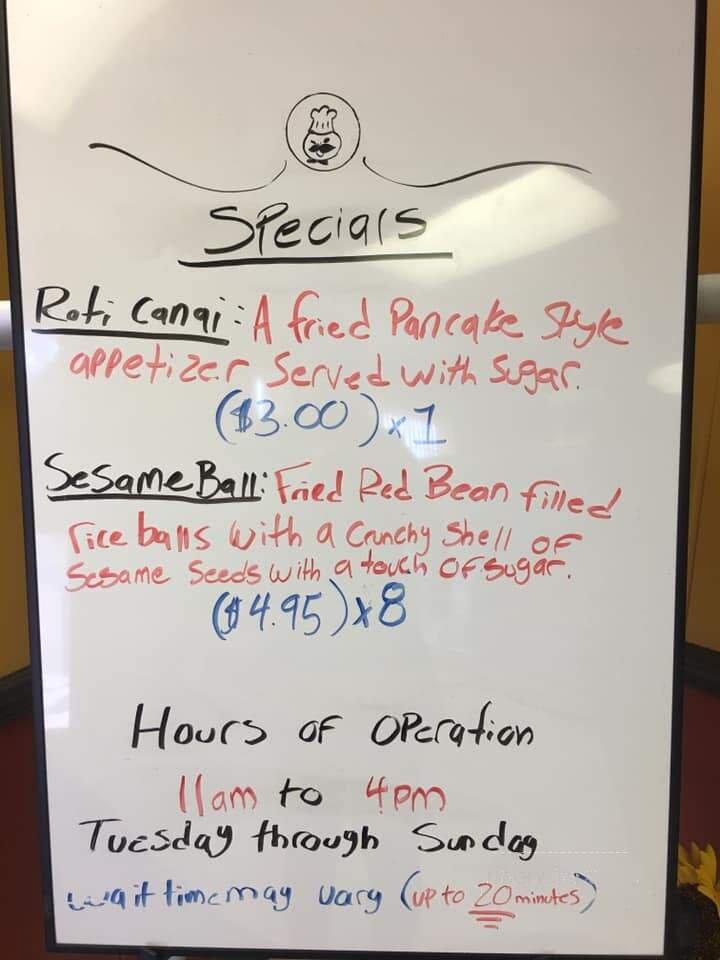 Specials
Roti Canai: A fried Pancake Style
appetizer Served with Sugar.
($3.00) x 1
Sesame Ball: Fried Red Bean filled
rice balls with a Crunchy Shell of
Sesame Seeds with a touch of sugar.
($4.95) x 8
Hours of Operation
11am to 4pm
Tuesday through Sunday
wait time may vary (up to 20 minutes)